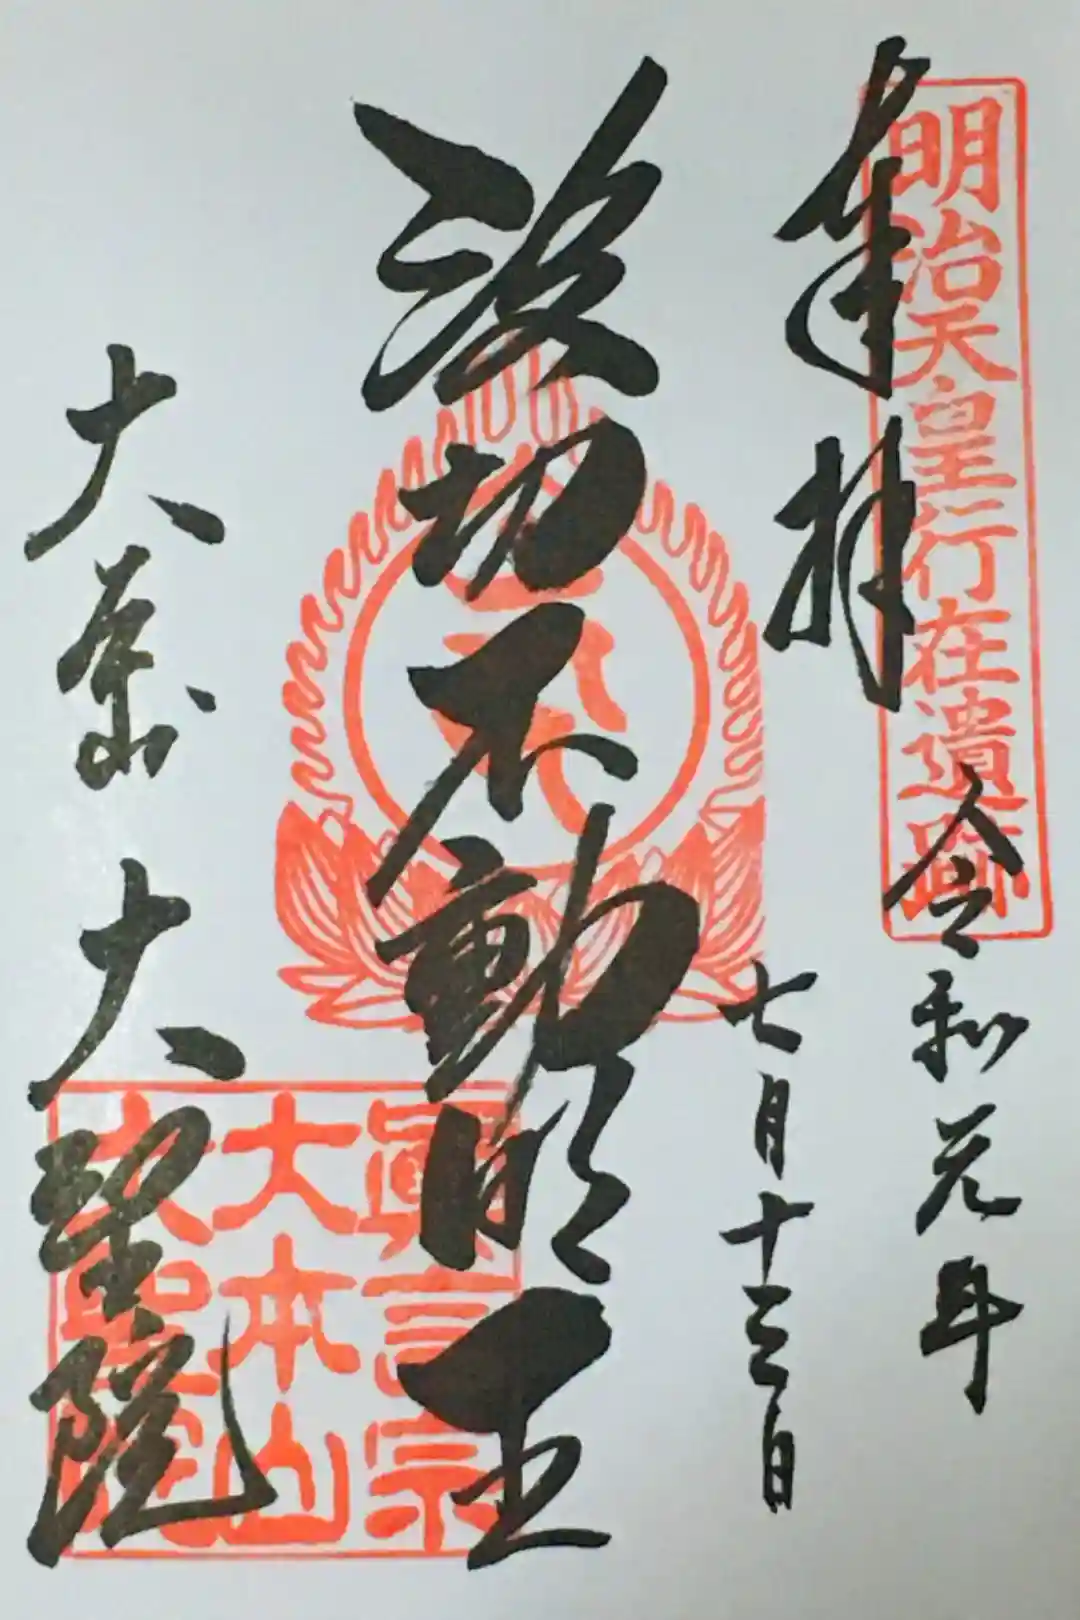 明治天皇行在遺跡
奉拝
令和元年
七月十三日
波切不動明王
眞言宗
大本山
大聖院
大本山
大聖院